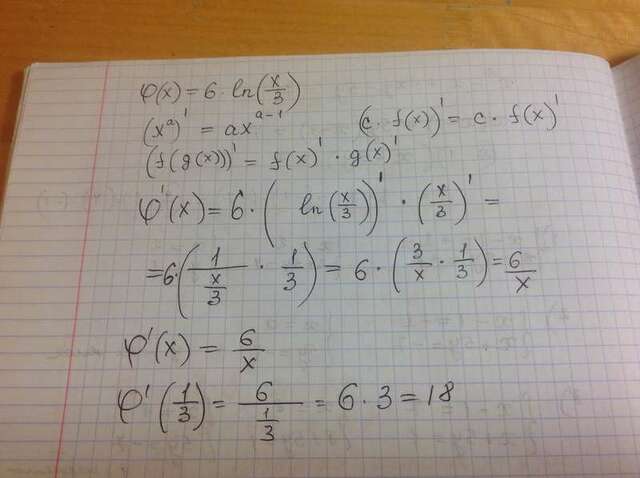 φ(x) = 6 · ln(x/3)
(x^a)' = ax^(a-1) (c · f(x))' = c · f(x)'
(f(g(x)))' = f(x)' · g(x)'
φ'(x) = 6 · (ln(x/3))' · (x/3)' =
= 6 · (1/(x/3) · 1/3) = 6 · (3/x · 1/3) = 6/x
φ'(x) = 6/x
φ'(1/3) = 6/(1/3) = 6 · 3 = 18